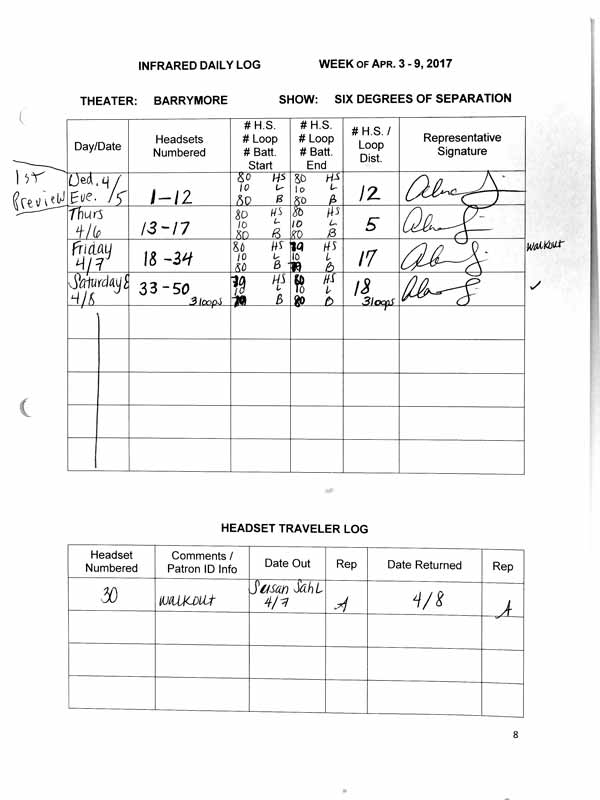 INFRARED DAILY LOG WEEK OF APR. 3 - 9, 2017
THEATER: BARRYMORE SHOW: SIX DEGREES OF SEPARATION
Day/Date Headsets Numbered # H.S. # Loop # Batt. Start # H.S. # Loop # Batt. End # H.S. / Loop Dist. Representative Signature
1st Preview
Wed. 4/5 Eve. 1-12 80 HS 10 L 80 B 80 HS 10 L 80 B 12
Thurs 4/6 13-17 80 HS 10 L 80 B 80 HS 10 L 80 B 5
Friday 4/7 18-34 80 HS 10 L 80 B 79 HS 10 L 79 B 17 walkout
Saturday E 4/8 33-50 3 loops 79 HS 10 L 79 B 80 HS 10 L 80 B 18 3 loops ✓
HEADSET TRAVELER LOG
Headset Numbered Comments / Patron ID Info Date Out Rep Date Returned Rep
30 walkout Susan Sahl 4/7 A 4/8 A
8